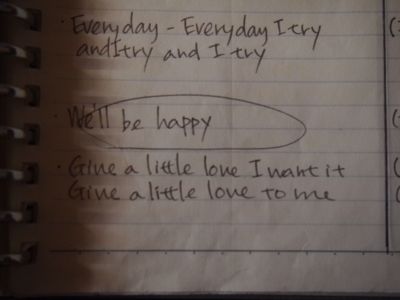 · Everyday - Everyday I try
and I try and I try
· We'll be happy
· Give a little love I want it
Give a little love to me